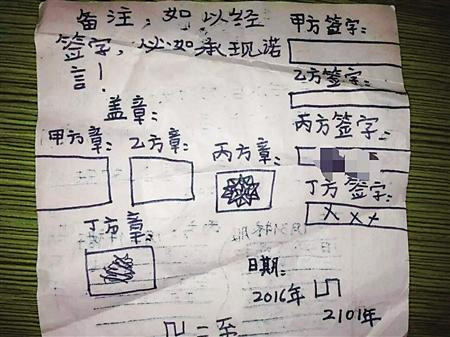 备注：如以经
签字，以如承现诺
言！
盖章：
甲方章：
乙方章：
丙方章：
丁方章：
甲方签字：
乙方签字：
丙方签字：
丁方签字：
xxx
日期：
2016年
2101年
二至